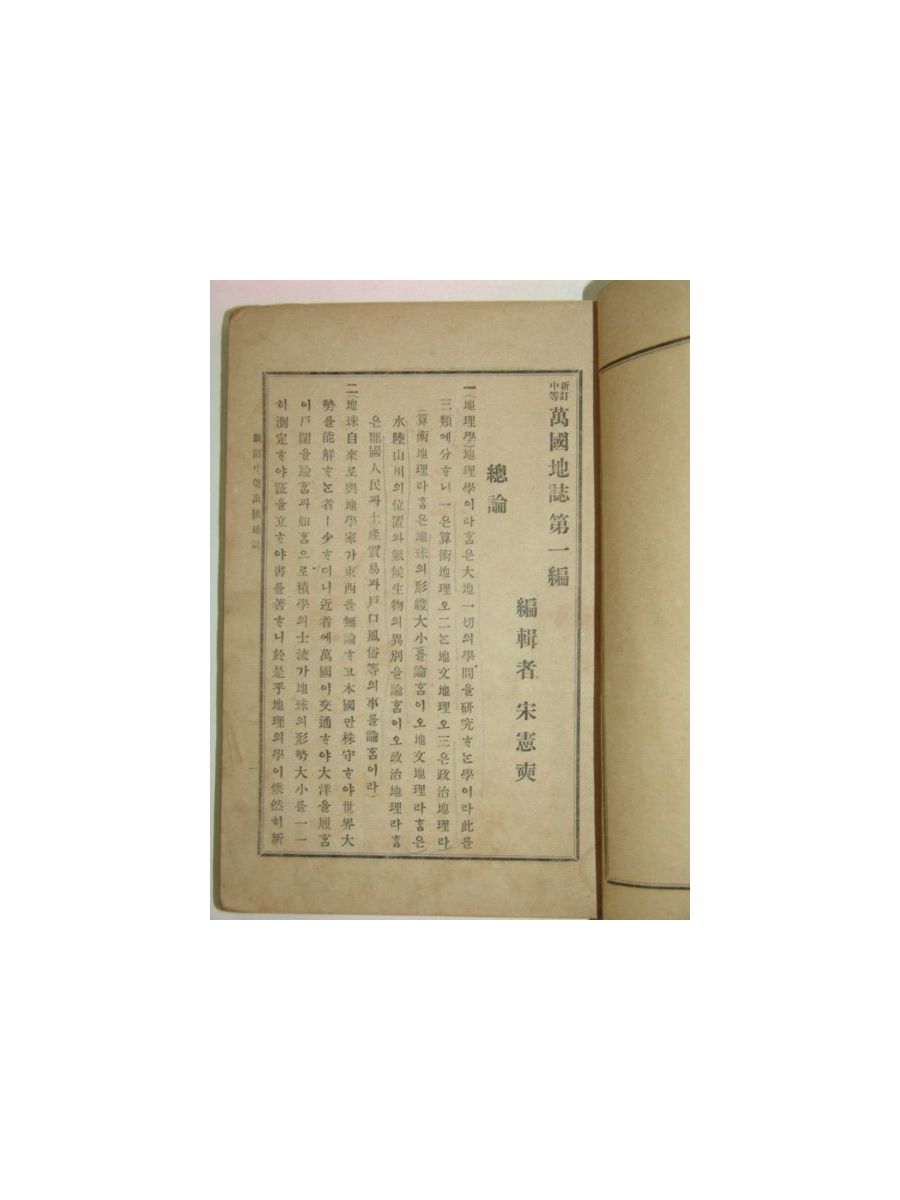 新訂中等 萬國地誌 第一編
編輯者 宋憲奭
總論
一(地理學)地理學이라홈은大地一切의學問을硏究ᄒᆞᄂᆞᆫ學이라此를
三類에分ᄒᆞ니一은算術地理오二ᄂᆞᆫ地文地理오三은政治地理라
(算術地理라홈은地球의形體大小를論홈이오地文地理라홈은
水陸山川의位置와氣候生物의異別을論홈이오政治地理라홈
은那國人民과土産貿易과戶口風俗等의事를論홈이라)
二(地球自來로輿地學家가東西를無論ᄒᆞ고本國만株守ᄒᆞ야世界大
勢를能解ᄒᆞᄂᆞᆫ者ㅣ少ᄒᆞ더니近者에萬國이交通ᄒᆞ야大洋을履홈
이戶闥을踰홈과如홈으로積學의士流가地球의形勢大小를一一
히測定ᄒᆞ야証을立ᄒᆞ야書를著ᄒᆞ니於是乎地理의學이燦然히新
新訂中等萬國地誌
一